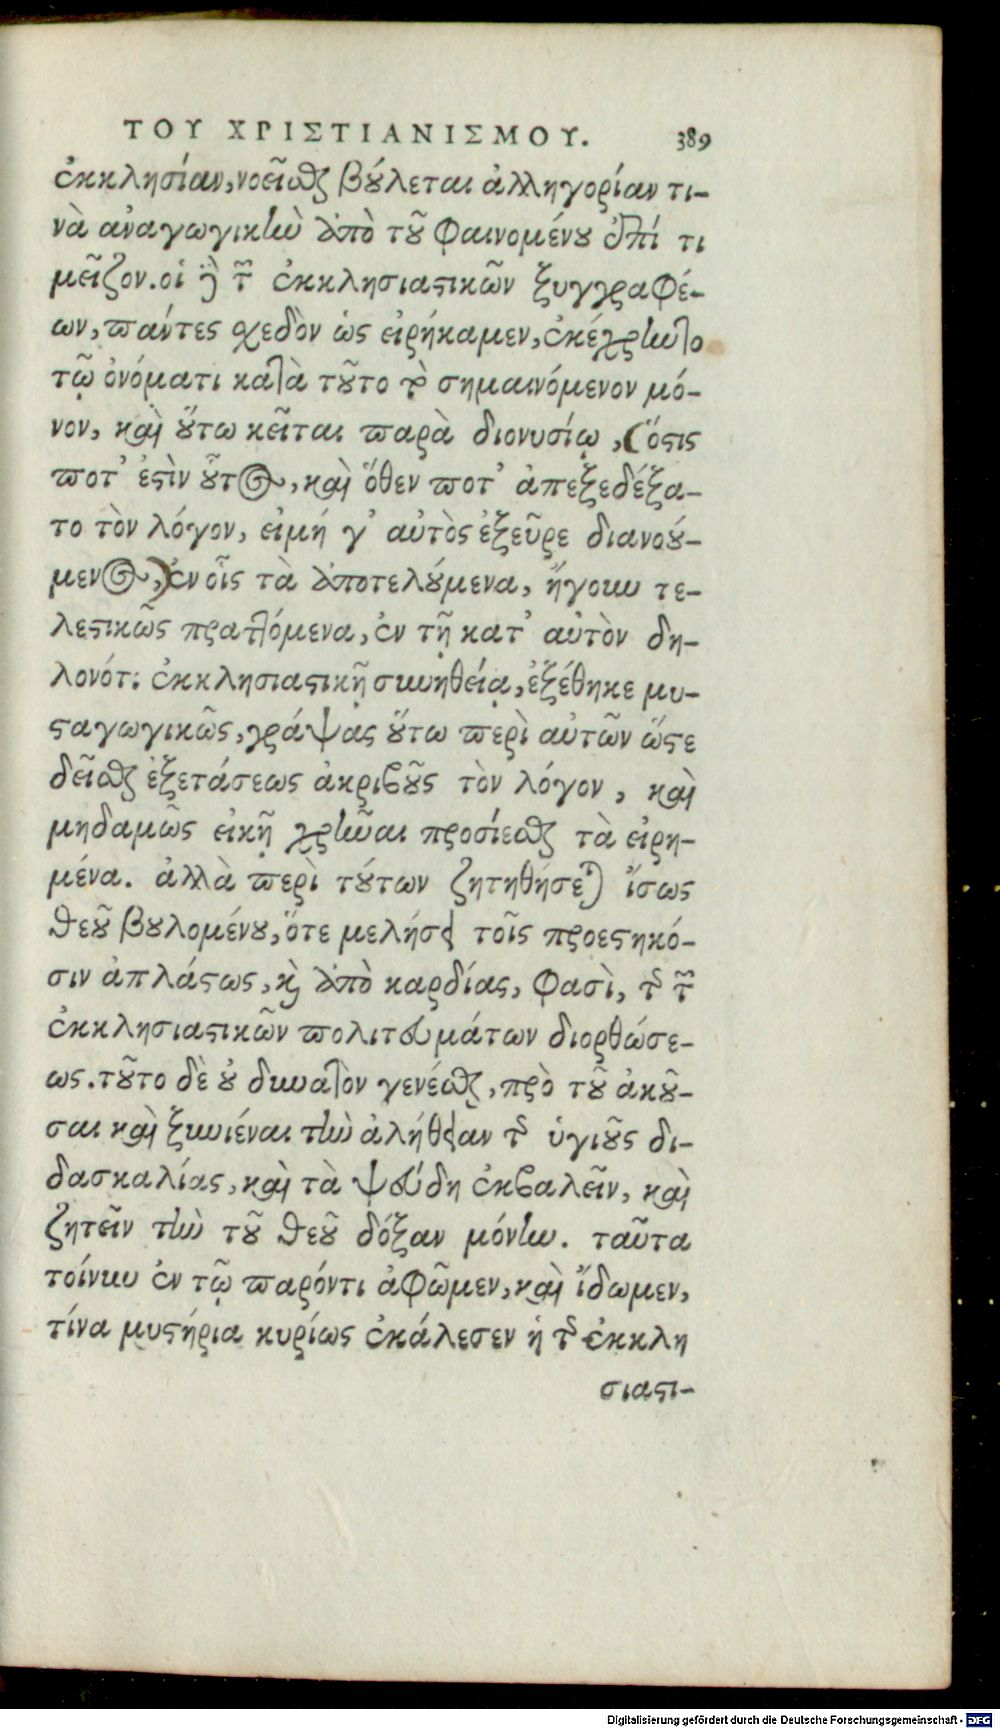 ΤΟΥ ΧΡΙΣΤΙΑΝΙΣΜΟΥ. 389
ἐκκλησίαν, νοεῖσθαι βούλεται ἀλληγορίαν τι-
νὰ ἀναγωγικὴν ἀπὸ τοῦ φαινομένου ἐπί τι
μεῖζον. οἱ δὲ τῶν ἐκκλησιαστικῶν ξυγγραφέ-
ων, πάντες σχεδὸν ὡς εἰρήκαμεν, ἐκέχρηντο
τῷ ὀνόματι κατὰ τοῦτο τὸ σημαινόμενον μό-
νον, καὶ οὕτω κεῖται παρὰ διονυσίῳ, (ὅστις
ποτ' ἐστὶν οὗτος, καὶ ὅθεν ποτ' ἀπεξεδέξα-
το τὸν λόγον, εἰμή γ' αὐτὸς ἐξεῦρε διανοού-
μενος,) ἐν οἷς τὰ ἀποτελούμενα, ἤγουν τε-
λεστικῶς πραττόμενα, ἐν τῇ κατ' αὐτὸν δη-
λονότι ἐκκλησιαστικῇ συνηθείᾳ, ἐξέθηκε μυ-
σταγωγικῶς, γράψας οὕτω περὶ αὐτῶν ὥστε
δεῖσθαι ἐξετάσεως ἀκριβοῦς τὸν λόγον, καὶ
μηδαμῶς εἰκῇ χρῆναι προσίεσθαι τὰ εἰρη-
μένα. ἀλλὰ περὶ τούτων ζητηθήσεται ἴσως
θεοῦ βουλομένου, ὅτε μελήσει τοῖς προεστηκό-
σιν ἀπλάστως, καὶ ἀπὸ καρδίας, φασὶ, τῆς τῶν
ἐκκλησιαστικῶν πολιτευμάτων διορθώσε-
ως. τοῦτο δὲ οὐ δυνατὸν γενέσθαι, πρὸ τοῦ ἀκοῦ-
σαι καὶ ξυνιέναι τὴν ἀλήθειαν τῆς ὑγιοῦς δι-
δασκαλίας, καὶ τὰ ψευδῆ ἐκβαλεῖν, καὶ
ζητεῖν τὴν τοῦ θεοῦ δόξαν μόνην. ταῦτα
τοίνυν ἐν τῷ παρόντι ἀφῶμεν, καὶ ἴδωμεν,
τίνα μυστήρια κυρίως ἐκάλεσεν ἡ τῆς ἐκκλη
σιαστι-
Digitalisierung gefördert durch die Deutsche Forschungsgemeinschaft - DFG